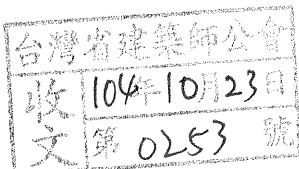 台灣省建築師公會
收文
104年10月23日
第 0253 號